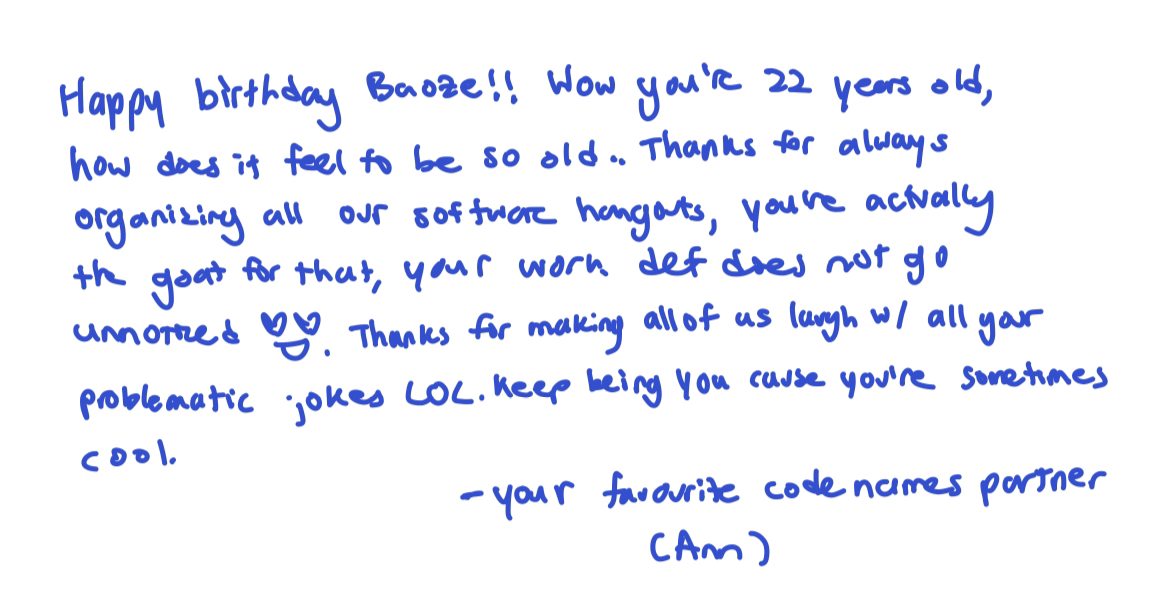 Happy birthday Baoze!! Wow you're 22 years old,
how does it feel to be so old.. Thanks for always
organizing all our software hangouts, you're actually
the goat for that, your work def does not go
unnoticed 😍. Thanks for making all of us laugh w/ all your
problematic jokes LOL. Keep being you cause you're sometimes
cool.
- your favourite codenames partner
(Ann)